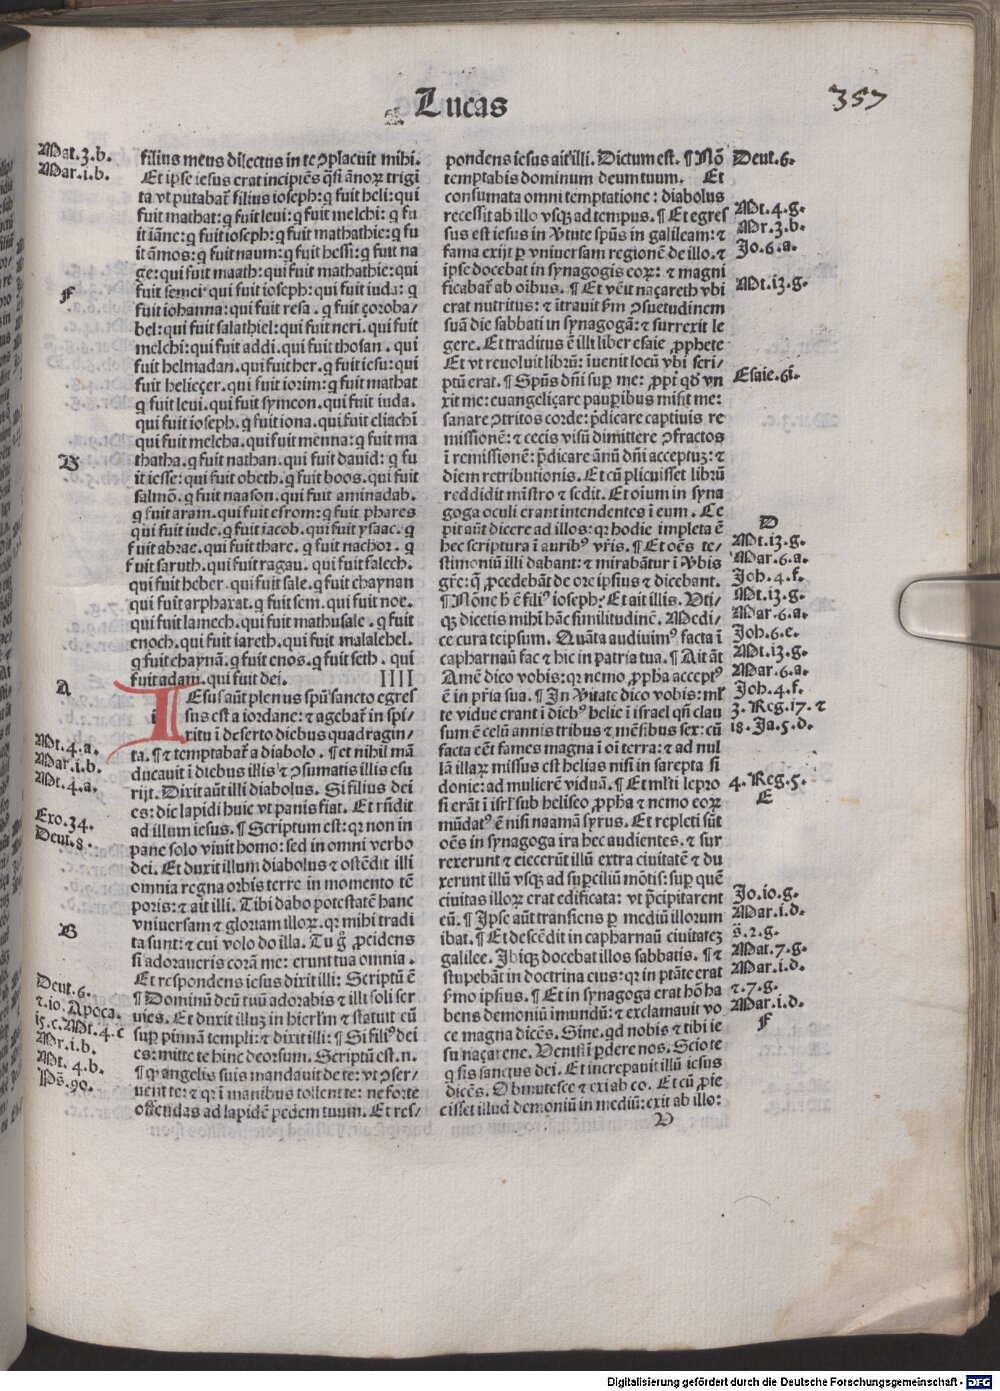 Lucas
357
Mat.3.b.
Mar.i.b.
F
B
A
Mt.4.a.
Mar.i.b.
Mt.4.a.
Exo.34.
Deut.8.
B
Deut.6.
⁊.io.Apoca.
i5.c.Mt.4.c
Mr.i.b.
Mt.4.b.
Ps̄.90.
filius meus dilectus in te ꝯplacuit mihi.
Et ipse iesus erat incipiēs q̄si ānoꝝ trigī
ta vt putabat̄ filius ioseph: q fuit heli: qui
fuit mathat: q fuit leui: q fuit melchi: q fu
it iāne: q fuit ioseph: q fuit mathathie: q fu
it āmos: q fuit naum: q fuit hesli: q fuit na
ge: qui fuit maath: qui fuit mathathie: qui
fuit semei qui fuit ioseph: qui fuit iuda: q
fuit iohanna: qui fuit resa. q fuit çoroba/
bel: qui fuit salathiel: qui fuit neri. qui fuit
melchi: qui fuit addi. qui fuit thosan. qui
fuit helmadan. qui fuit her. q fuit iesu: qui
fuit helieçer. qui fuit iorim: q fuit mathat
q fuit leui. qui fuit symeon. qui fuit iuda.
qui fuit ioseph. q fuit iona. qui fuit eliachī
qui fuit melcha. qui fuit menna: q fuit ma
thatha. q fuit nathan. qui fuit dauid: q fu
it iesse: qui fuit obeth. q fuit boos. qui fuit
salmō. q fuit naason. qui fuit aminadab.
q fuit aram. qui fuit esrom: q fuit phares
qui fuit iude. q fuit iacob. qui fuit ysaac. q
fuit abrae. qui fuit thare. q fuit nachor. q
fuit saruth. qui fuit ragau. qui fuit falech.
qui fuit heber. qui fuit sale. q fuit chaynan
qui fuit arphaxat. q fuit sem. qui fuit noe.
qui fuit lamech. qui fuit mathusale. q fuit
enoch. qui fuit iareth. qui fuit malalehel.
q fuit chaynā. q fuit enos. q fuit seth. qui
fuit adam. qui fuit dei. IIII
IEsus aūt plenus spū sancto egres
sus est a iordane: ⁊ agebat̄ in spi/
ritu ī deserto diebus quadragin/
ta. ¶ ⁊ temptabat̄ a diabolo. ¶ et nihil mā
ducauit ī diebus illis ⁊ ꝯsumatis illis esu
rijt. Dixit aūt illi diabolus. Si filius dei
es: dic lapidi huic vt panis fiat. Et rn̄dit
ad illum iesus. ¶ Scriptum est: qr non in
pane solo viuit homo: sed in omni verbo
dei. Et duxit illum diabolus ⁊ ostēdit illi
omnia regna orbis terre in momento tē
poris: ⁊ ait illi. Tibi dabo potestatē hanc
vniuersam ⁊ gloriam illoꝝ. qr mihi tradi
ta sunt: ⁊ cui volo do illa. Tu g̊ ꝓcidens
si adoraueris corā me: erunt tua omnia.
Et respondens iesus dixit illi: Scriptū ē
¶ Dominū deū tuū adorabis ⁊ illi soli ser
uies. Et duxit illuꝫ in hierl̄m ⁊ statuit cū
suꝑ pinnā templi: ⁊ dixit illi: ¶ Si fili⁹ dei
es: mitte te hinc deorsum. Scriptū est. n.
¶ qꝫ angelis suis mandauit de te: vt ꝯser/
uent te: ⁊ qr ī manibus tollent te: ne forte
offendas ad lapidē pedem tuum. Et res/
pondens iesus ait illi. Dictum est. ¶ Nō
temptabis dominum deum tuum. Et
consumata omni temptatione: diabolus
recessit ab illo vsqꝫ ad tempus. ¶ Et egres
sus est iesus in v̄tute spūs in galileam: ⁊
fama exijt ꝑ vniuersam regionē de illo. ⁊
ipse docebat in synagogis eoꝝ: ⁊ magni
ficabat̄ ab oībus. ¶ Et vēit naçareth vbi
erat nutritus: ⁊ ītrauit ẜm ꝯsuetudinem
suā die sabbati in synagogā: ⁊ surrexit le
gere. Et traditus ē illi liber esaie ꝓphete
Et vt reuoluit librū: īuenit locū vbi scri/
ptū erat. ¶ Spūs dn̄i suꝑ me: ꝓpt̄ qd̄ vn
xit me: euangeliçare pauꝑibus misit me:
sanare ꝯtritos corde: p̄dicare captiuis re
missionē: ⁊ cecis visū dimittere ꝯfractos
ī remissionē: p̄dicare ānū dn̄i acceptuꝫ: ⁊
diem retributionis. Et cū plicuisset librū
reddidit mīstro ⁊ sedit. Et oīum in syna
goga oculi erant intendentes ī eum. Ce
pit aūt dicere ad illos: qr hodie impleta ē
hec scriptura ī aurib⁹ vr̄is. ¶ Et oēs te/
stimoniū illi dabant: ⁊ mirabāt̄ur ī v̄bis
gr̄e: q̄ ꝓcedebāt de ore ipsius ⁊ dicebant.
¶ Nōne h̄ ē fili⁹ ioseph: Et ait illis. Vti/
qꝫ dicetis mihi hāc similitudinē. Medi/
ce cura teipsum. Quāta audiuim⁹ facta ī
capharnaū fac ⁊ hic in patria tua. ¶ Ait āt
Amē dico vobis: qr nemo ꝓpha accept⁹
ē in pr̄ia sua. ¶ In v̄itate dico vobis: ml̄
te vidue erant ī dieb⁹ helie ī israel qn̄ clau
sum ē celū annis tribus ⁊ mēsibus sex: cū
facta eēt fames magna ī oī terra: ⁊ ad nul
lā illaꝝ missus est helias nisi in sarepta si
donie: ad mulierē viduā. ¶ Et ml̄ti lepro
si erāt ī isrl̄ sub heliseo ꝓpha ⁊ nemo eoꝝ
mūdat⁹ ē nisi naamā syrus. Et repleti sūt
oēs in synagoga ira hec audientes. ⁊ sur
rexerunt ⁊ eiecerūt illū extra ciuitatē ⁊ du
xerunt illū vsqꝫ ad suꝑciliū mōtis: suꝑ quē
ciuitas illoꝝ erat edificata: vt p̄cipitarent
eū. ¶ Ipse aūt transiens ꝑ mediū illorum
ibat. ¶ Et descēdit in capharnaū ciuitateꝫ
galilee. Ibiqꝫ docebat illos sabbatis. ¶ ⁊
stupebāt in doctrina eius: qr in ptāte erat
ẜmo ipsius. ¶ Et in synagoga erat hō hā
bens demoniū imundū: ⁊ exclamauit vo
ce magna dicēs. Sine. qd nobis ⁊ tibi ie
su naçarene. Venisti ꝑdere nos. Scio te
q sis sanctus dei. Et increpauit illū iesus
dicēs. Obmutesce ⁊ exi ab eo. Et cū ꝓie
cisset illud demoniū in mediū: exit ab illo:
D
Deut.6.
Mt.4.g.
Mr.3.b.
Jo.6.a.
Mt.i3.g.
Esaie.6i.
D
Mt.i3.g.
Mar.6.a.
Joh.4.f.
Mt.i3.g.
Mar.6.a.
Joh.6.e.
Mt.i3.g.
Mar.6.a.
Joh.4.f.
3.Reg.i7.⁊
i8.Ja.5.d.
4.Reg.5.
E
Jo.io.g.
Mar.i.d.
s̄.2.g.
Mat.7.g.
Mar.i.d.
⁊.7.g.
Mar.i.d.
F
Digitalisierung gefördert durch die Deutsche Forschungsgemeinschaft - DFG